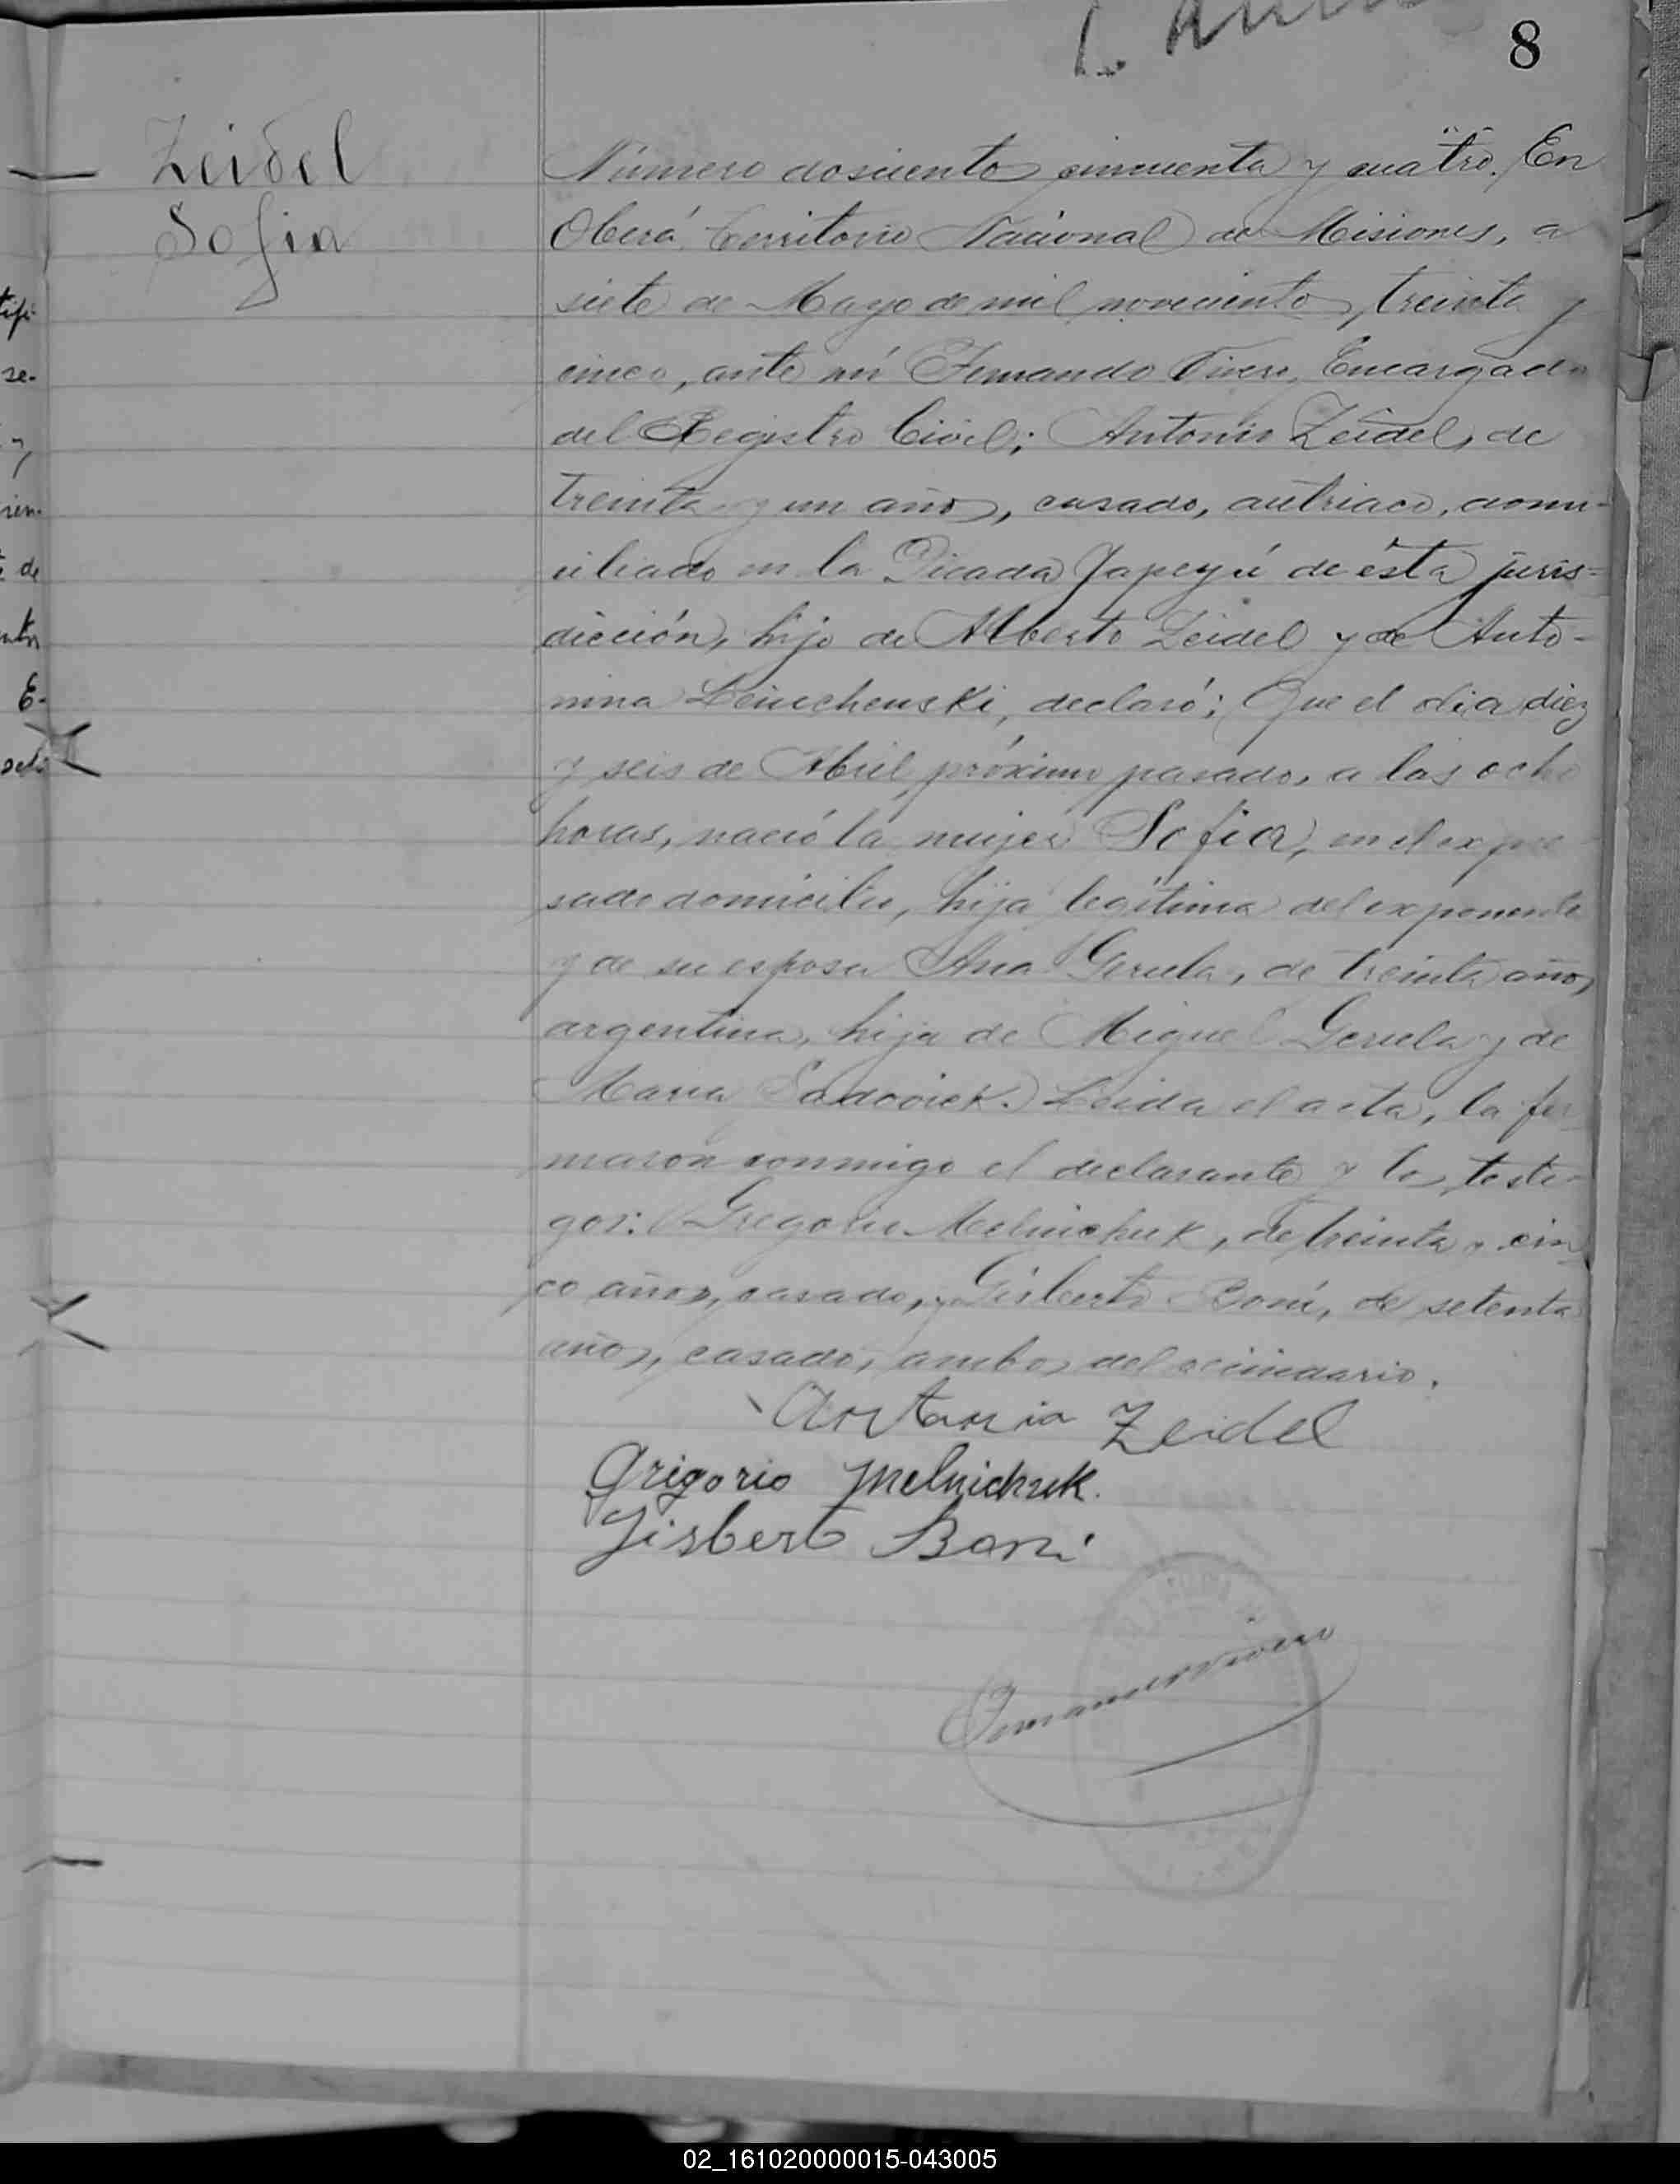 8
Zeidel
Sofia
Número dosciento cincuenta y cuatro. En
Oberá, Territorio Nacional de Misiones, a
siete de Mayo de mil noveciento, treinta y
cinco, ante mí Fernando Vivero, Encargado
del Registro Civil; Antonio Zeidel, de
treinta y un años, casado, autriaco, domi-
ciliado en la Picada Yapeyú de ésta juris-
dicción, hijo de Alberto Zeidel y de Anto-
nina, declaró: Que el dia diez
y seis de Abril próximo pasado, a las ocho
horas, nació la mujer Sofia, en el expre
sado domicilio, hija legítima del exponente
y de su esposa Ana Gerula, de treinta años,
argentina, hija de Miguel Gerula y de
Maria Sadoviek. Leida el acta, la fir
maron conmigo el declarante y los testi-
gos: Gregorio Melnichuk, de treinta y cin
co años, casado, y Gisberto Boni, de setenta
años, casado, ambos del vecindario.
Antonio Zeidel
Grigorio Melnichuk.
Gisberto Boni
Fernando Vivero
tifi-
se-
y
de
E-
02_161020000015-043005